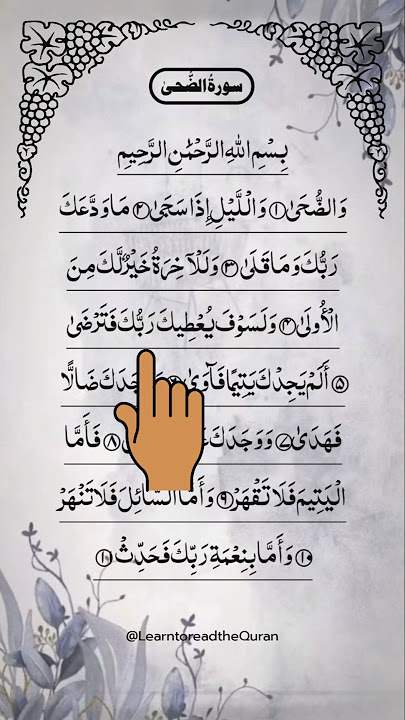 سورة الضحى
بِسْمِ اللهِ الرَّحْمٰنِ الرَّحِيْمِ
وَالضُّحَىٰ ۝١ وَاللَّيْلِ إِذَا سَجَىٰ ۝٢ مَا وَدَّعَكَ
رَبُّكَ وَمَا قَلَىٰ ۝٣ وَلَلْآخِرَةُ خَيْرٌ لَّكَ مِنَ
الْأُولَىٰ ۝٤ وَلَسَوْفَ يُعْطِيكَ رَبُّكَ فَتَرْضَىٰ
۝٥ أَلَمْ يَجِدْكَ يَتِيمًا فَآوَىٰ ضَالًّا
فَهَدَىٰ ۝٧ وَوَجَدَكَ ۝٨ فَأَمَّا
الْيَتِيمَ فَلَا تَقْهَرْ ۝٩ وَأَمَّا السَّائِلَ فَلَا تَنْهَرْ
۝١٠ وَأَمَّا بِنِعْمَةِ رَبِّكَ فَحَدِّثْ ۝١١
@LearntoreadtheQuran